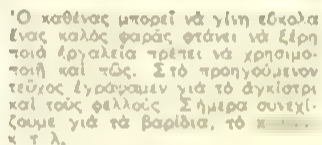 Ὁ καθένας μπορεῖ νὰ γίνη εὔκολα
ἕνας καλὸς φαρᾶς φτάνει νὰ ξέρη
ποιὰ ἐργαλεῖα πρέπει νὰ χρησιμο-
ποιῆ καὶ πῶς. Στὸ προηγούμενον
τεῦχος ἐγράψαμεν γιὰ τὸ ἀγκίστρι
καὶ τοὺς φελλοὺς Σήμερα συνεχί-
ζουμε γιὰ τὰ βαρίδια, τὸ
κ τ λ.